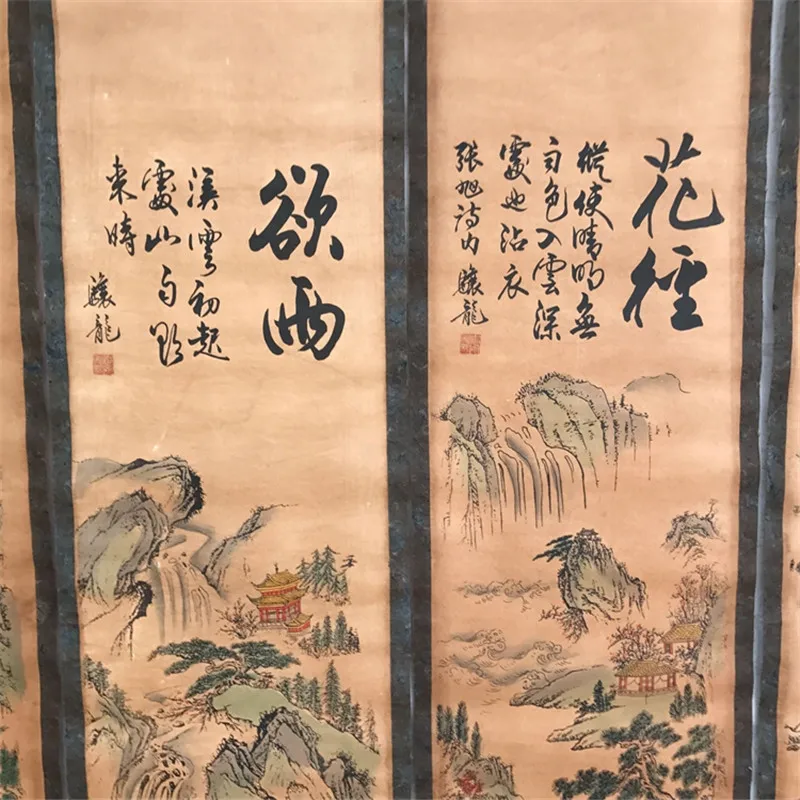 花徑
縱使晴明無
雨色入雲深
處也沾衣
張旭詩内 驤龍
欲雨
溪雲初起
處山雨欲
来時
驤龍